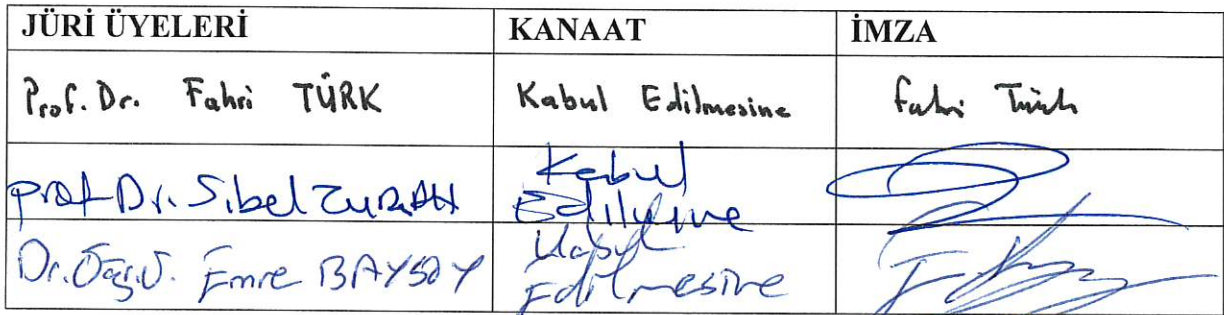 JÜRİ ÜYELERİ KANAAT İMZA
Prof. Dr. Fahri TÜRK Kabul Edilmesine Fahri Türk
Prof. Dr. Sibel TURAN Kabul
Edilmesine
Dr. Öğr. Ü. Emre BAYSOY Kabul
Edilmesine